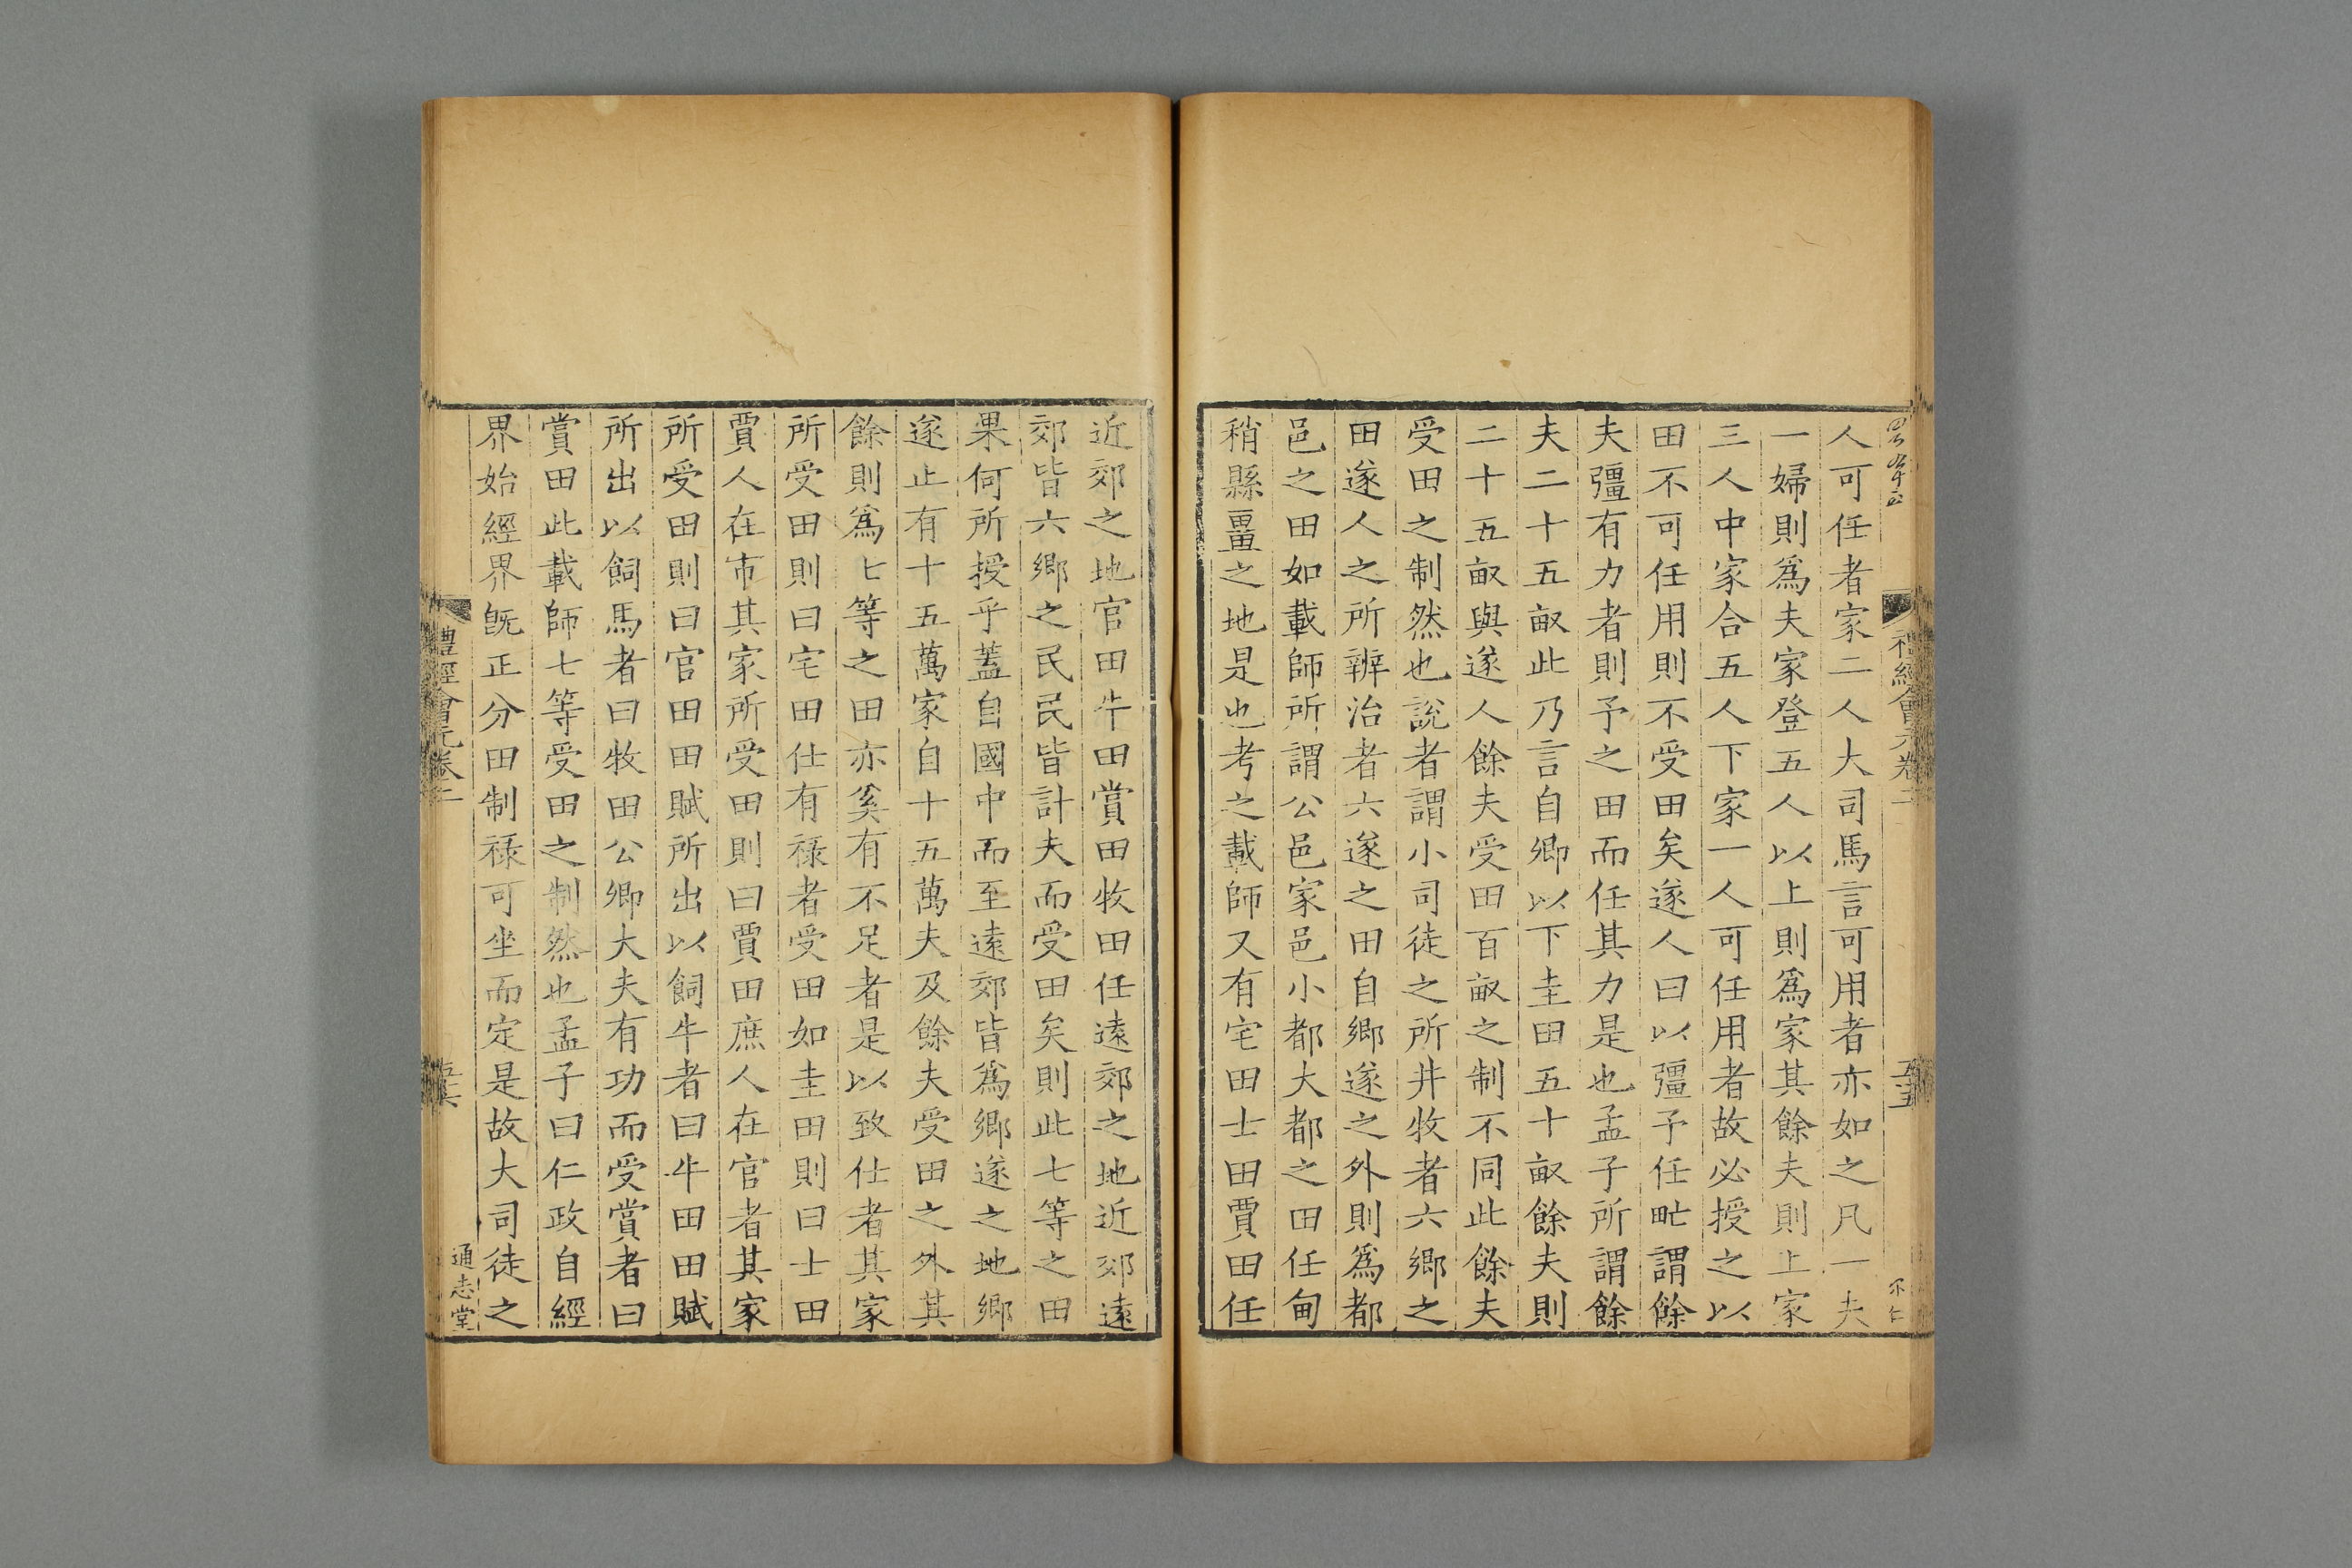 人可任者家二人大司馬言可用者亦如之凡一夫
一婦則為夫家登五人以上則為家其餘夫則上家
三人中家合五人下家一人可任用者故必授之以
田不可任用則不受田矣遂人曰以彊予任甿謂餘
夫彊有力者則予之田而任其力是也孟子所謂餘
夫二十五畝此乃言自卿以下圭田五十畝餘夫則
二十五畝與遂人餘夫受田百畝之制不同此餘夫
受田之制然也說者謂小司徒之所井牧者六鄉之
田遂人之所辨治者六遂之田自鄉遂之外則為都
邑之田如載師所謂公邑家邑小都大都之田任甸
稍縣畺之地是也考之載師又有宅田士田賈田任
近郊之地官田牛田賞田牧田任遠郊之地近郊遠
郊皆六鄉之民民皆計夫而受田矣則此七等之田
果何所授乎蓋自國中而至遠郊皆為鄉遂之地鄉
遂止有十五萬家自十五萬夫及餘夫受田之外其
餘則為七等之田亦奚有不足者是以致仕者其家
所受田則曰宅田仕有祿者受田如圭田則曰士田
賈人在市其家所受田則曰賈田庶人在官者其家
所受田則曰官田田賦所出以飼牛者曰牛田田賦
所出以飼馬者曰牧田公卿大夫有功而受賞者曰
賞田此載師七等受田之制然也孟子曰仁政自經
界始經界既正分田制祿可坐而定是故大司徒之
禮經會元卷二
通志堂